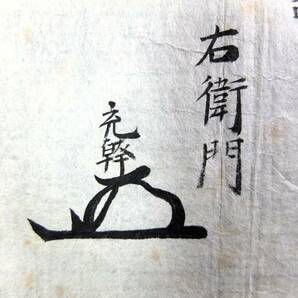 右衛門
充幹